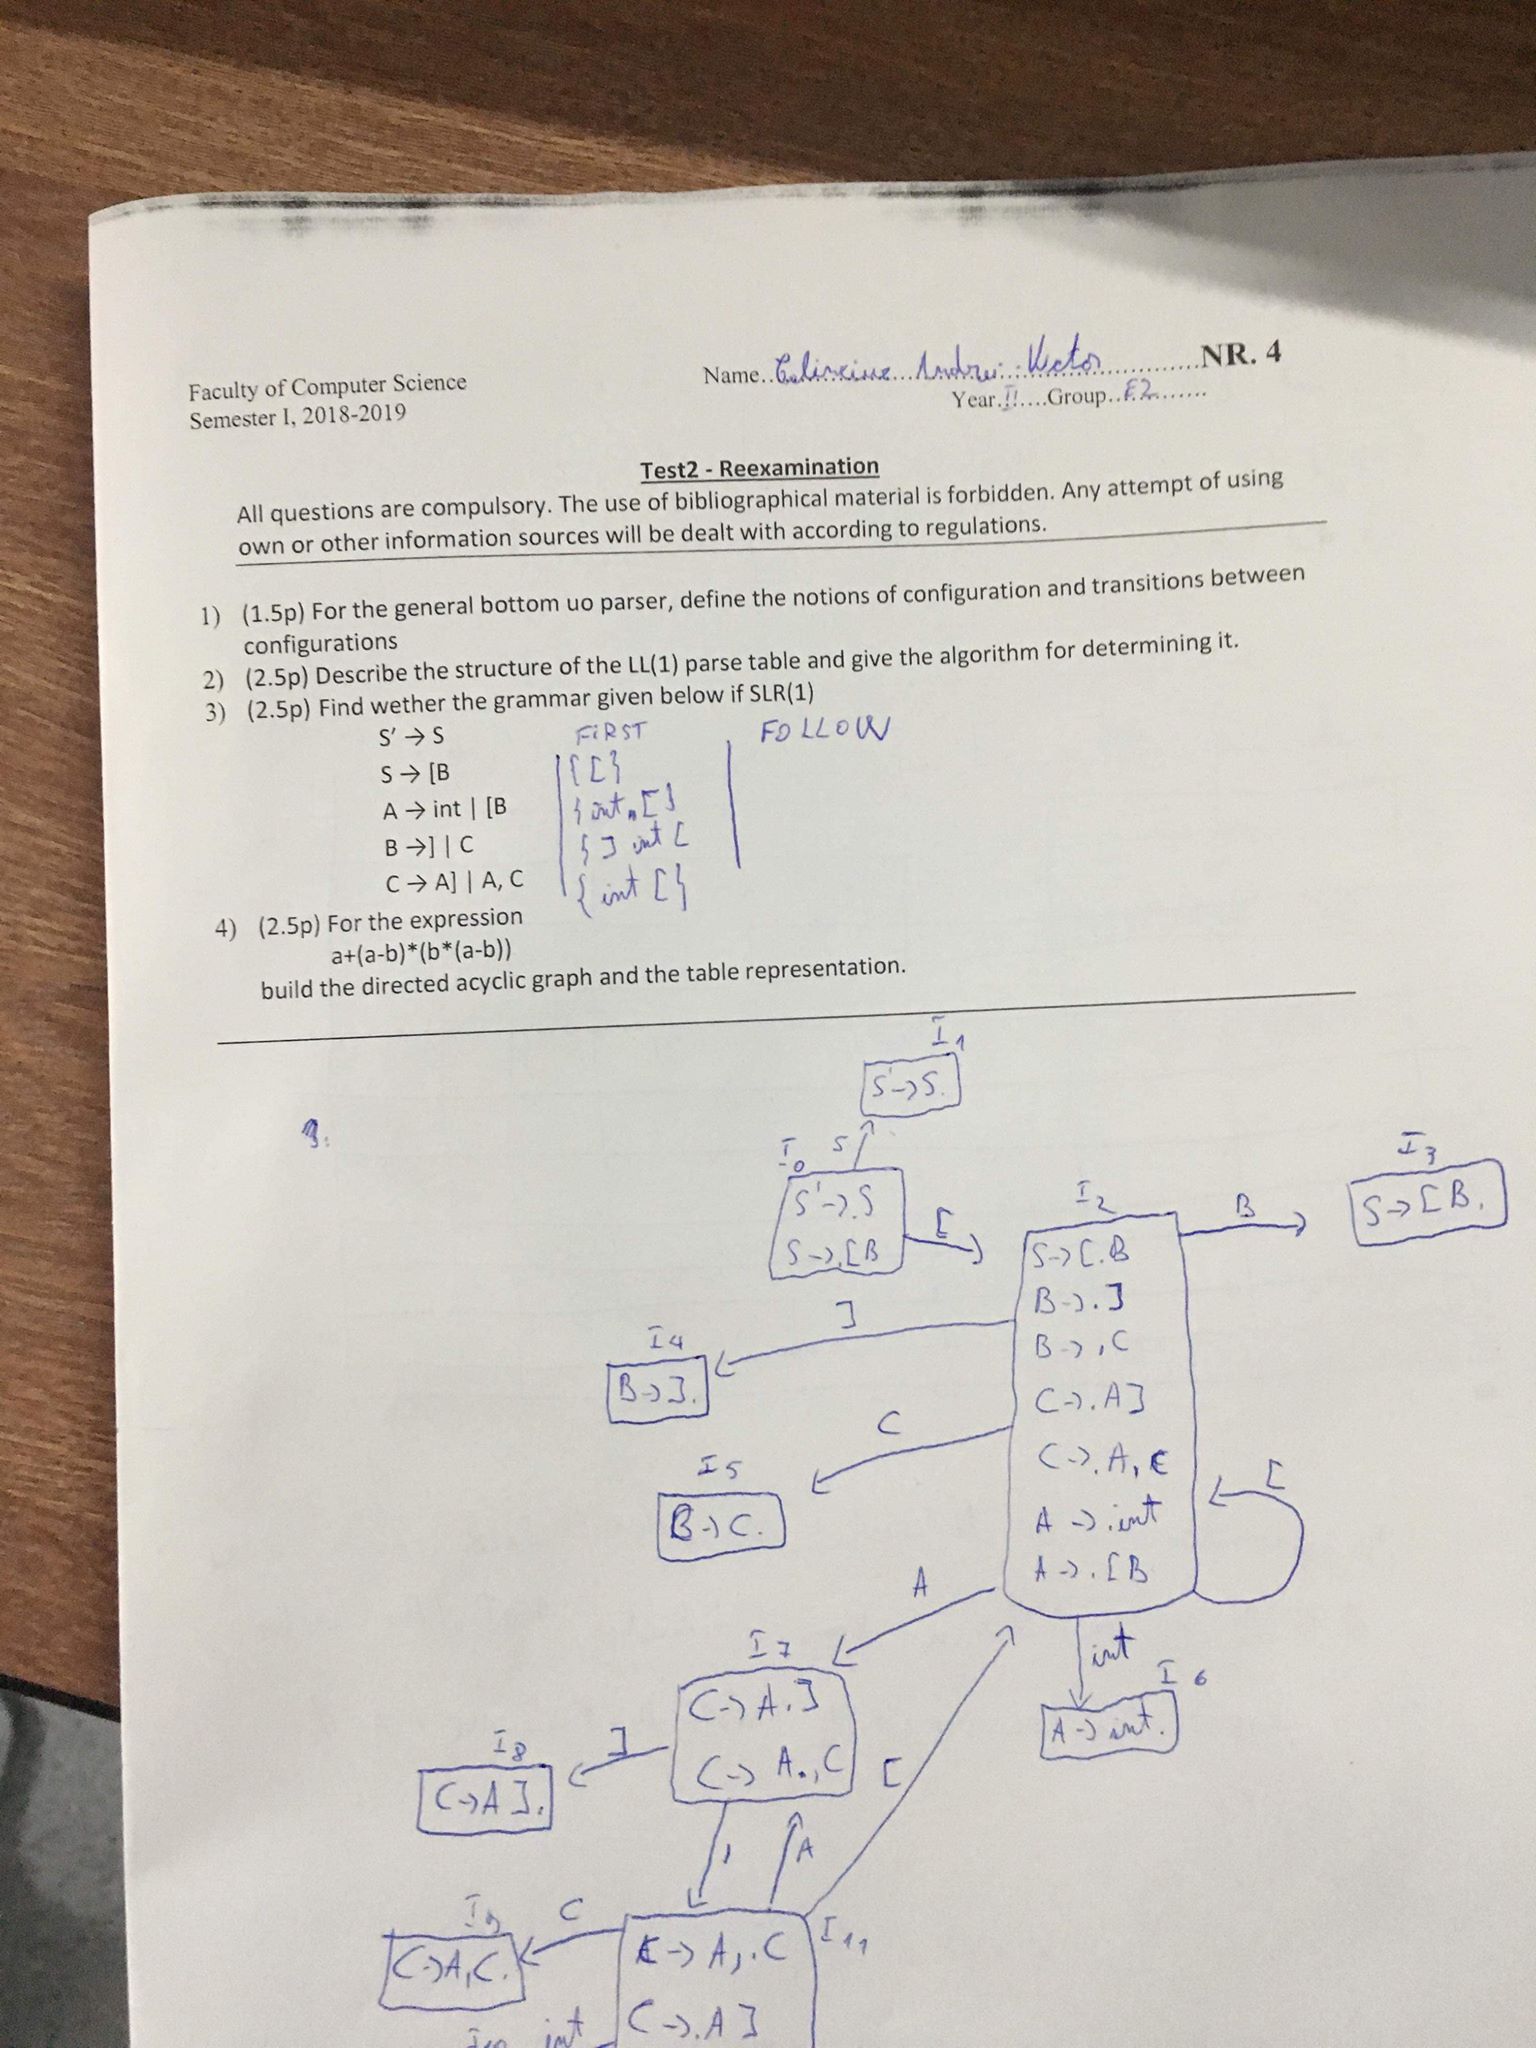 Faculty of Computer Science
Semester I, 2018-2019
Name.. Andrei Victor NR. 4
Year.II....Group..E2
Test2 - Reexamination
All questions are compulsory. The use of bibliographical material is forbidden. Any attempt of using
own or other information sources will be dealt with according to regulations.
1) (1.5p) For the general bottom uo parser, define the notions of configuration and transitions between
configurations
2) (2.5p) Describe the structure of the LL(1) parse table and give the algorithm for determining it.
3) (2.5p) Find wether the grammar given below if SLR(1)
S' → S FIRST FOLLOW
S → [B {[}
A → int | [B {int, [}
B →] | C {] int [
C → A] | A, C {int [}
4) (2.5p) For the expression
a+(a-b)*(b*(a-b))
build the directed acyclic graph and the table representation.
I1
S'→S.
3.
I0 S
S'→.S
S→.[B
[
I2
S→[.B
B→.]
B→.C
C→.A]
C→.A,C
A→.int
A→.[B
B
I3
S→[B.
]
I4
B→].
C
I5
B→C.
[
A
int
I6
A→int.
I7
C→A.]
C→A.,C
]
I8
C→A].
[
,
A
C
I9
C→A,C.
I11
C→A,.C
C→.A]
I10 int